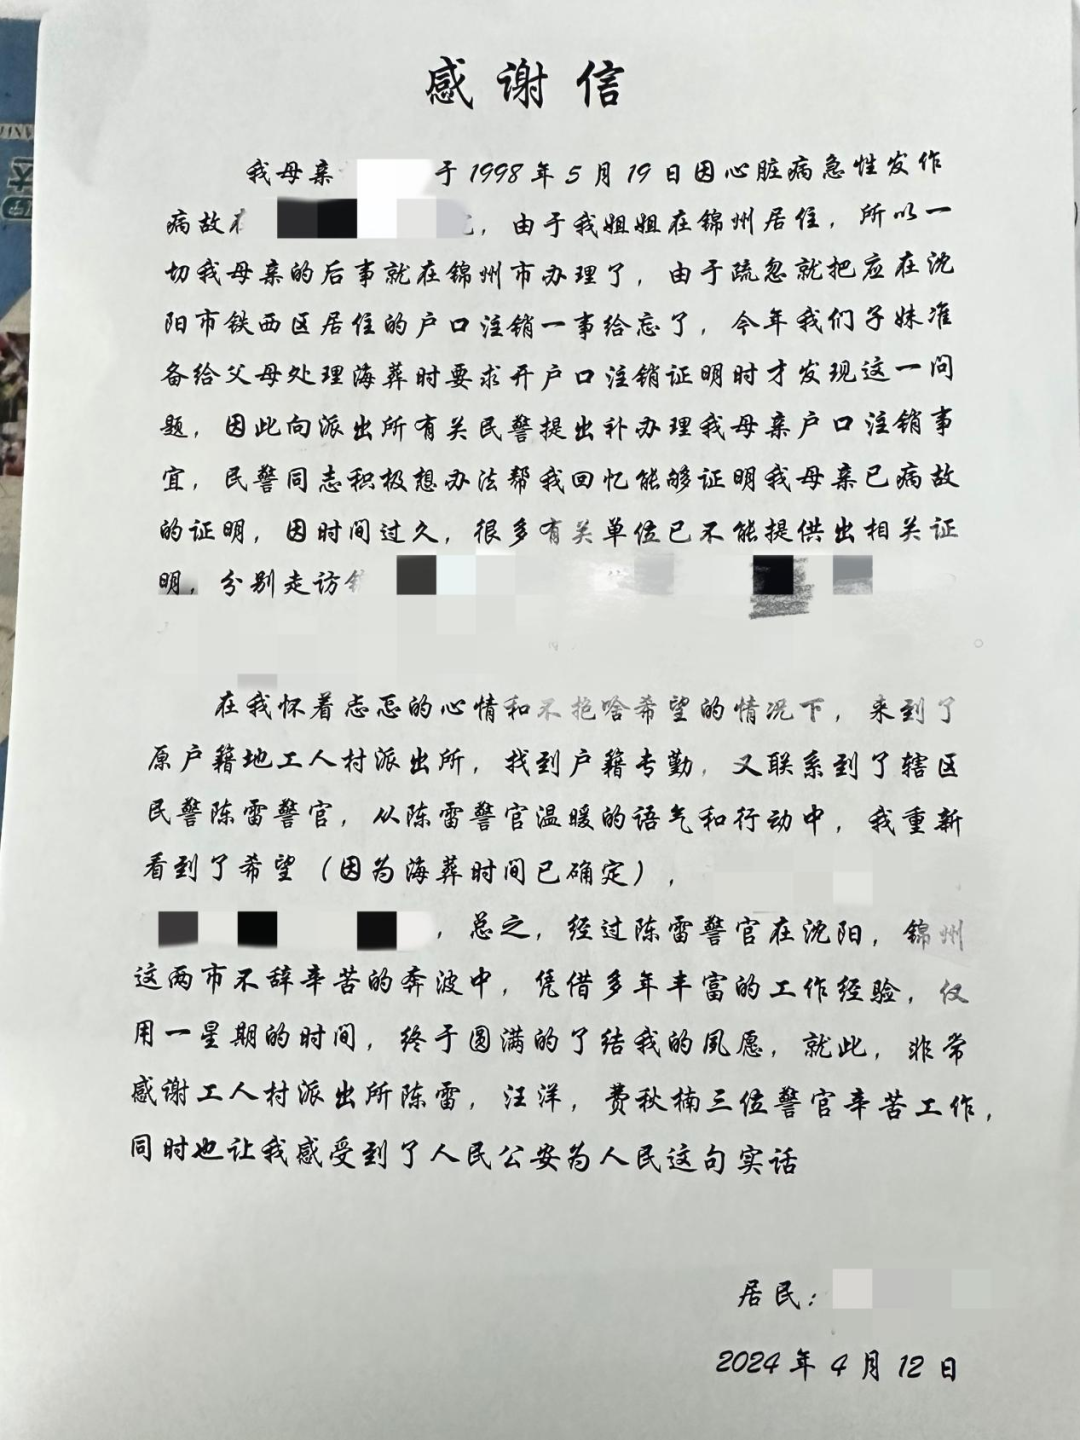 感谢信
我母亲 于1998年5月19日因心脏病急性发作
病故在 ，由于我姐姐在锦州居住，所以一
切我母亲的后事就在锦州市办理了，由于疏忽就把应在沈
阳市铁西区居住的户口注销一事给忘了，今年我们子妹准
备给父母处理海葬时要求开户口注销证明时才发现这一问
题，因此向派出所有关民警提出补办理我母亲户口注销事
宜，民警同志积极想办法帮我回忆能够证明我母亲已病故
的证明，因时间过久，很多有关单位已不能提供出相关证
明，分别走访
在我怀着忐忑的心情和不抱啥希望的情况下，来到了
原户籍地工人村派出所，找到户籍专勤，又联系到了辖区
民警陈雷警官，从陈雷警官温暖的语气和行动中，我重新
看到了希望（因为海葬时间已确定），
，总之，经过陈雷警官在沈阳，锦州
这两市不辞辛苦的奔波中，凭借多年丰富的工作经验，仅
用一星期的时间，终于圆满的了结我的夙愿，就此，非常
感谢工人村派出所陈雷，汪洋，费秋楠三位警官辛苦工作，
同时也让我感受到了人民公安为人民这句实话
居民：
2024年4月12日